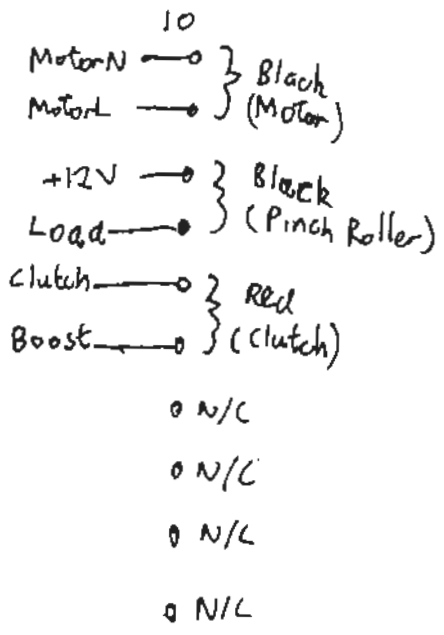 10
MotorN
MotorL
} Black
(Motor)
+12V
Load
} Black
(Pinch Roller)
Clutch
Boost
} Red
(Clutch)
N/C
N/C
N/C
N/C